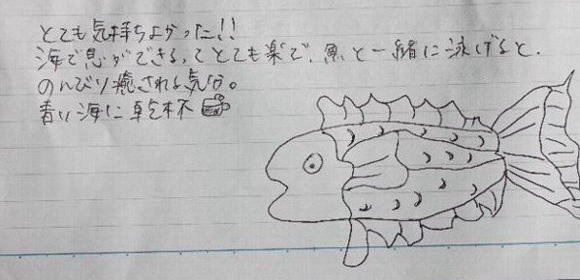 とても気持ちよかった!!
海で息ができるってとても楽で、魚と一緒に泳げると、
のんびり癒される気分。
青い海に乾杯